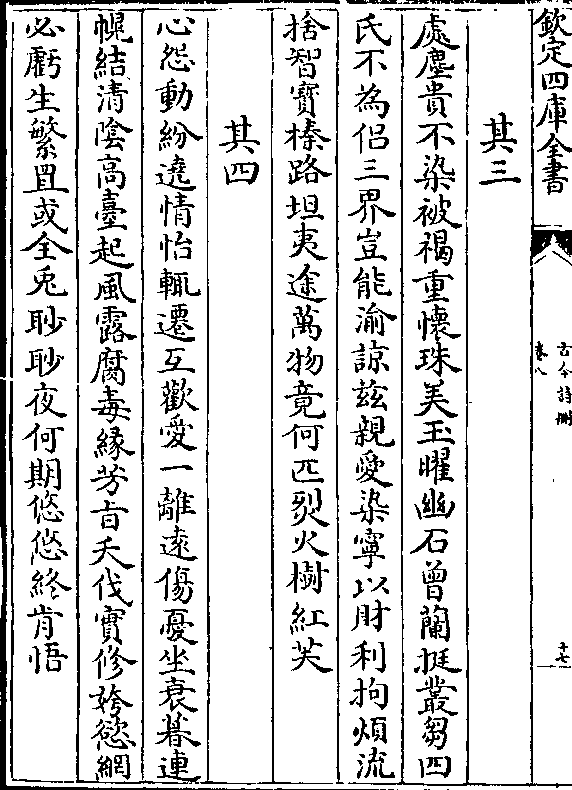 欽定四庫全書
古今詩刪
卷八
十七
其三
處塵貴不染被褐重懷珠美玉曜幽石曾蘭挺叢芻四
氏不為侶三界豈能渝諒兹親愛染寧以財利拘煩流
捨智寶榛路坦夷途萬物竟何匹烈火樹紅芙
其四
心怨動紛遶情怡輒遷互歡愛一離遠傷憂坐衰暮連
幌結清陰高臺起風露腐毒緣芳旨夭伐實修姱慾網
必虧生繁罝或全兎眇眇夜何期悠悠終肯悟